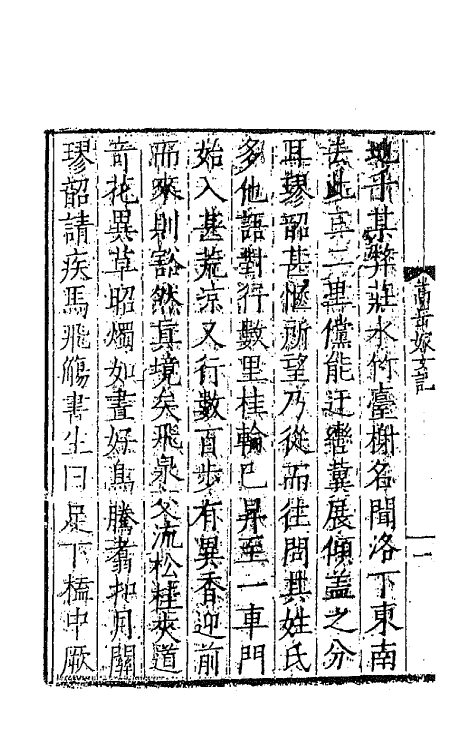 嵩岳嫁女記
一
地乎某弊莊水竹臺榭名聞洛下東南
去此二里儻能迂轡冀展傾盖之分
耳璆韶甚愜所望乃從而往問其姓氏
多他語對行數里桂輪已昇至一車門
始入甚荒凉又行數百步有異香迎前
而來則豁然真境矣飛泉交流松桂夾道
奇花異草昭燭如晝好鳥騰翥和月闢
璆韶請疾馬飛觴書生曰足下榼中厥